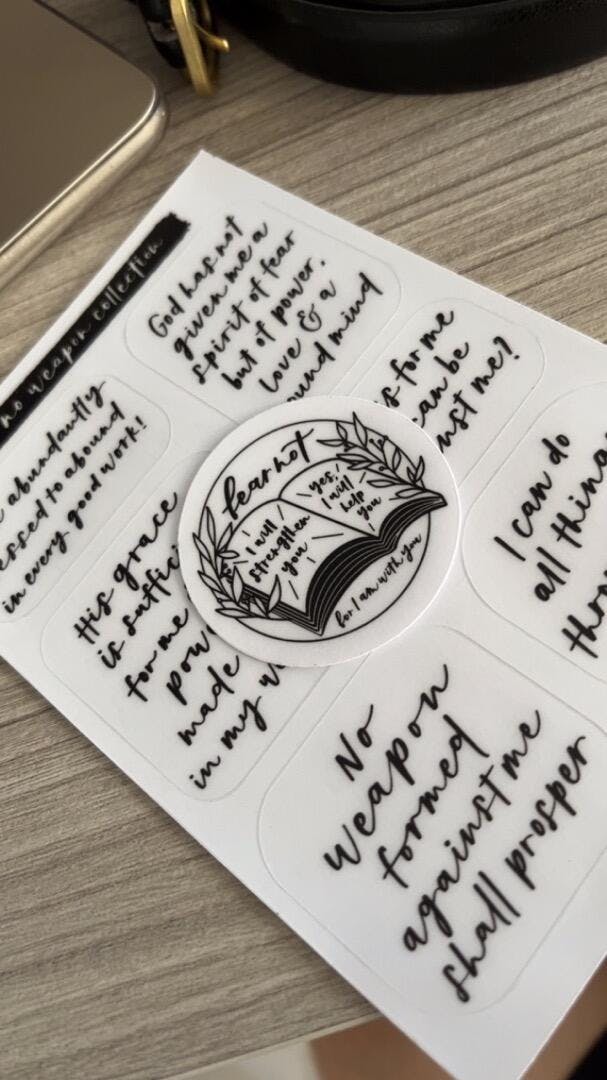 no weapon collection
God has not
given me a
spirit of fear
but of power,
love & a
ound mind
s for me
can be
nst me?
abundantly
essed to abound
in every good work!
His grace
is suffici
for me
pow
made
in my w
fear not
I will
strengthen
you
yes,
I will
help
you
for I am with you
I can do
all thing
thro
No
weapon
formed
against me
shall prosper